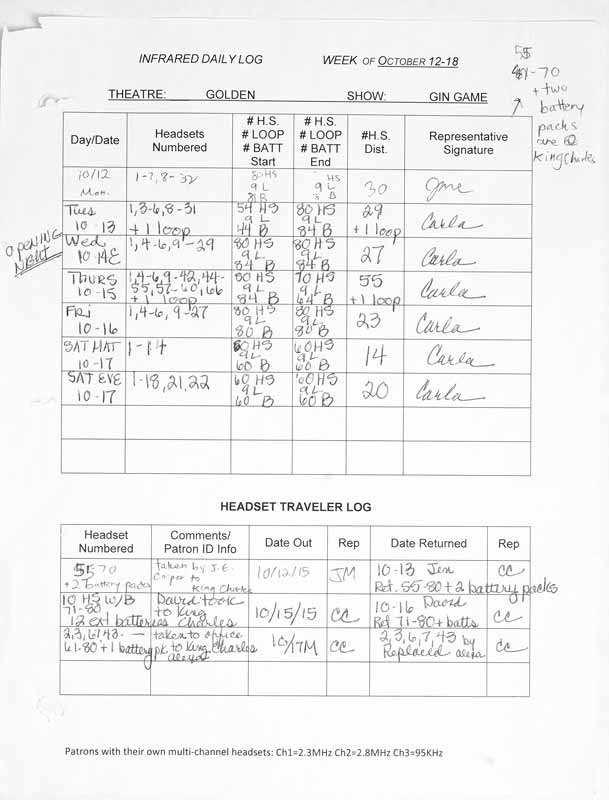 INFRARED DAILY LOG WEEK OF OCTOBER 12-18
55
-70
+ two
battery
packs
are @
King Charles
THEATRE: GOLDEN SHOW: GIN GAME
Day/Date Headsets Numbered # H.S. # LOOP # BATT Start # H.S. # LOOP # BATT End #H.S. Dist. Representative Signature
10/12 Mon. 1-7, 8-32 80 HS 9 L 9 L 30
Tues 10-13 1,3-6,8-31 +1 loop 54 HS 9 L 44 B 80 HS 9L 84 B 29 +1 loop Carla
OPENING NIGHT
Wed 10-14 1,4-6,9-29 80 HS 9 L 84 B 80 HS 9L 84 B 27 Carla
THURS 10-15 1,4-6,9-42,44-55,57-60,66 +1 loop 80 HS 9L 84 B 70 HS 9L 64 B 55 +1 loop Carla
FRI 10-16 1,4-6,9-27 80 HS 9L 80 B 80 HS 9L 80 B 23 Carla
SAT MAT 10-17 1-14 60 HS 9L 60 B 60 HS 9L 60 B 14 Carla
SAT EVE 10-17 1-18,21,22 60 HS 9L 60 B 60 HS 9L 60 B 20 Carla
HEADSET TRAVELER LOG
Headset Numbered Comments/ Patron ID Info Date Out Rep Date Returned Rep
55-70 +2 battery packs taken by J.E. to King Charles 10/12/15 JM 10-13 Jen Ret. 55-80 + 2 battery packs CC
10 HS w/B 71-80 12 ext batteries David took to King Charles 10/15/15 CC 10-16 David Ret 71-80 + batts CC
2,3,6,7,43- 61-80 + 1 battery pk taken to office to King Charles 10/17M CC 2,3,6,7,43 Replaced by alexa CC
Patrons with their own multi-channel headsets: Ch1=2.3MHz Ch2=2.8MHz Ch3=95KHz